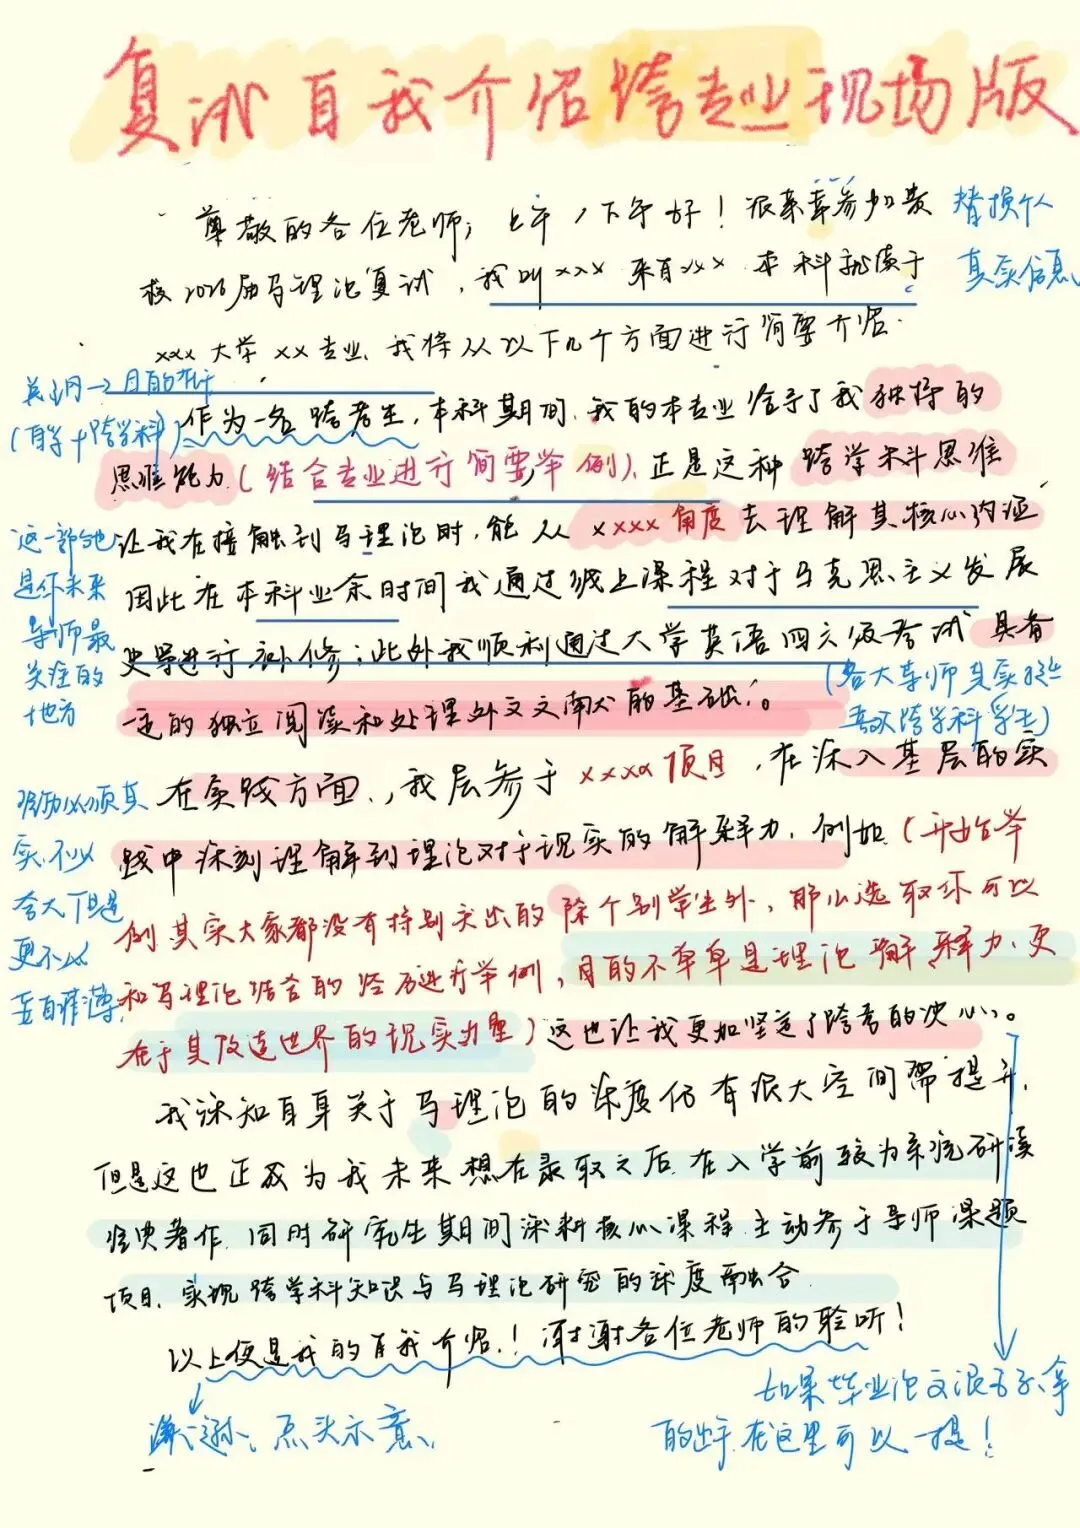 复试自我介绍跨专业现场版
尊敬的各位老师，上午/下午好！很荣幸参加贵
校2026届马理论复试，我叫xxx 来自xxx 本科就读于
xxx大学xx专业、我将从以下几个方面进行简要介绍.
替换个人
真实信息、
作为一名跨考生，本科期间，我的本专业给予了我独特的
(自学+跨学科)
思维能力(结合专业进行简要举例)、正是这种跨学科思维
让我在接触到马理论时，能从xxxx角度去理解其核心内涵
因此在本科业余时间我通过线上课程对于马克思主义发展
史等进行补修；此外我顺利通过大学英语四六级考试具备
一定的独立阅读和处理外文文献的基础。
这一部分
是你未来
导师最
关注的
地方
(各大导师其实挺
喜欢跨学科学生)
在实践方面，我曾参于xxxx项目，在深入基层的实
践中深刻理解到理论对于现实的解释力，例如(开始举
例其实大家都没有特别突出的除个别学生外，那么选取你可以
和马理论结合的经历进行举例，目的不单单是理论解释力、更
在于其改造世界的现实力量)这也让我更加坚定了跨考的决心。
必须真
实.不必
夸大但是
更不必
妄自菲薄
我深知自身关于马理论的深度仍有很大空间需提升，
但是这也正成为我未来想在录取之后.在入学前较为系统研读
经典著作.同时研究生期间深耕核心课程.主动参于导师课题
项目、实现跨学科知识与马理论研究的深度融合.
以上便是我的自我介绍！谢谢各位老师的聆听！
谦逊、点头示意、
如果毕业论文很
在这里可以一提！